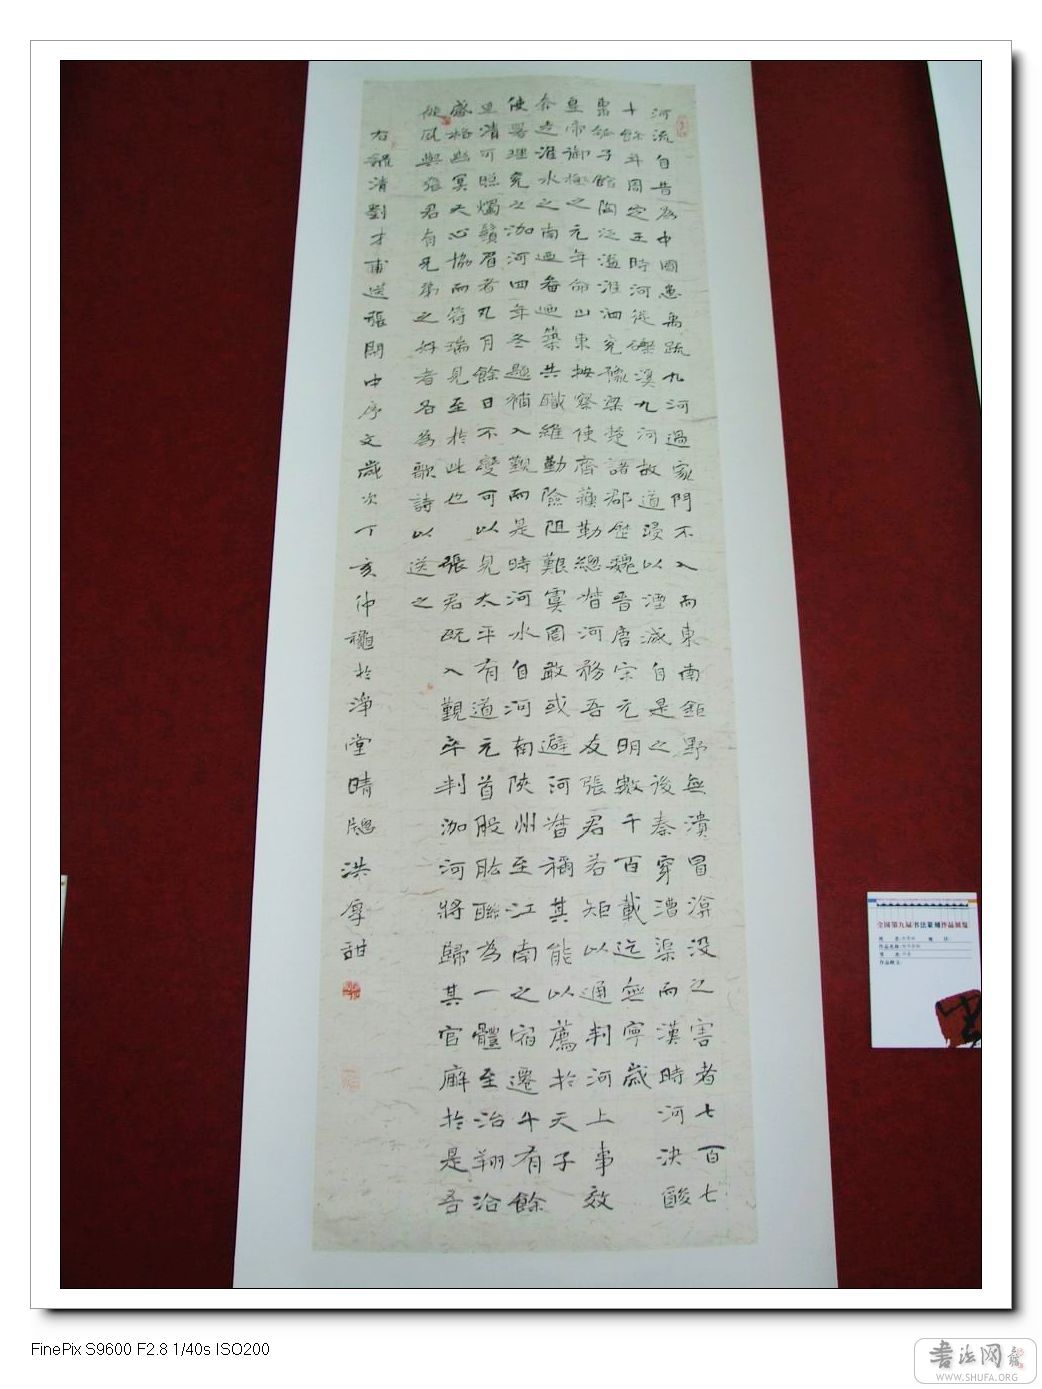 河流自昔為中國患禹疏九河過家門不入而東南鉅野無潰冒渰沒之害者七百七
十餘年周定王時河徙礫溪九河故道浸以湮滅自是之後秦穿漕渠而漢時河決酸
棗瓠子館陶泛溢淮泗兗豫梁楚諸郡歷魏晉唐宋元明數千百載迄無寧歲
皇帝御極之元年命山東按察使齊蘇勒總督河務吾友張君若矩以通判河上事效
奔走淮水之南迺畚迺築共職維勤險阻艱虞罔敢或避河督稱其能以薦於天子
使署理兗之泇河四年冬題補入覲而是時河水自河南陝州至江南之宿遷千有餘
里清可照燭鬚眉者凡月餘日不變可以見太平有道元首股肱聯為一體至治翔洽
感格幽冥天心協而符瑞見至於此也張君既入覲卒判泇河將歸其官廨於是吾
儕凡與張君有兄弟之好者各為歌詩以送之
右錄清劉才甫送張閑中序文歲次丁亥仲龝於淨堂晴窗洪厚甜
全国第九届书法篆刻作品展览
FinePix S9600 F2.8 1/40s ISO200
書法网
WWW.SHUFA.ORG